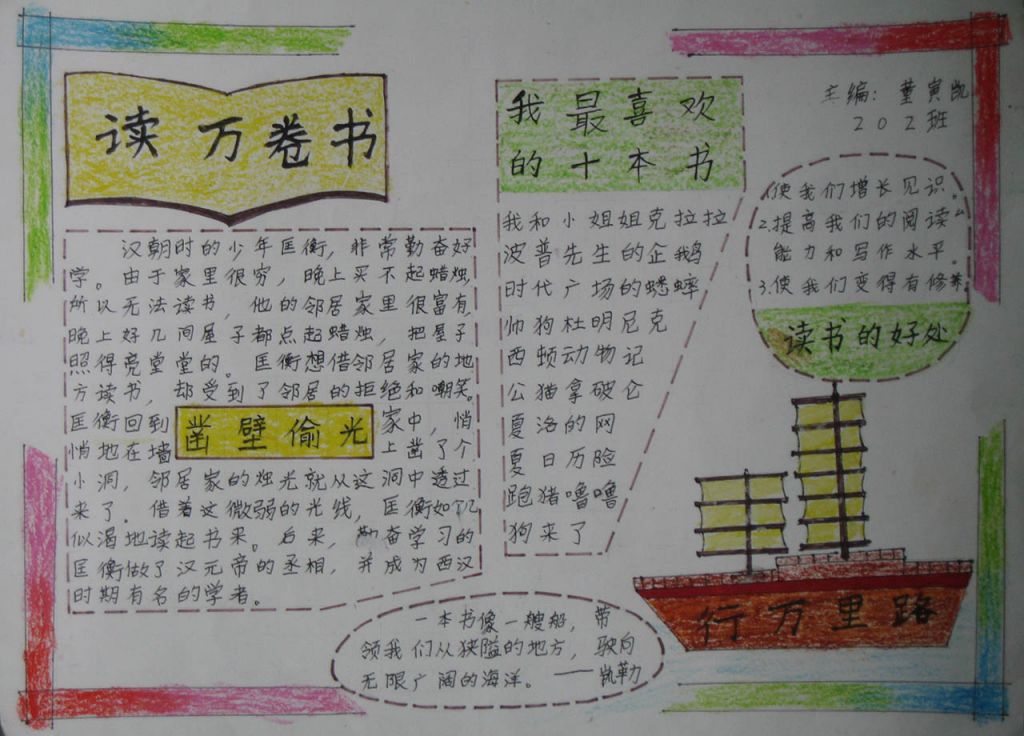 读万卷书
汉朝时的少年匡衡，非常勤奋好
学。由于家里很穷，晚上买不起蜡烛，
所以无法读书，他的邻居家里很富有，
晚上好几间屋子都点起蜡烛，把屋子
照得亮堂堂的。匡衡想借邻居家的地
方读书，却受到了邻居的拒绝和嘲笑。
匡衡回到家中，悄
悄地在墙上凿了个
凿壁偷光
小洞，邻居家的烛光就从这洞中透过
来了。借着这微弱的光线，匡衡如饥
似渴地读起书来。后来，勤奋学习的
匡衡做了汉元帝的丞相，并成为西汉
时期有名的学者。
我最喜欢
的十本书
我和小姐姐克拉拉
波普先生的企鹅
时代广场的蟋蟀
帅狗杜明尼克
西顿动物记
公猫拿破仑
夏洛的网
夏日历险
跑猪噜噜
狗来了
主编：董寅凯
202班
1.使我们增长见识。
2.提高我们的阅读
能力和写作水平。
3.使我们变得有修养
读书的好处
行万里路
一本书像一艘船，带
领我们从狭隘的地方，驶向
无限广阔的海洋。——凯勒